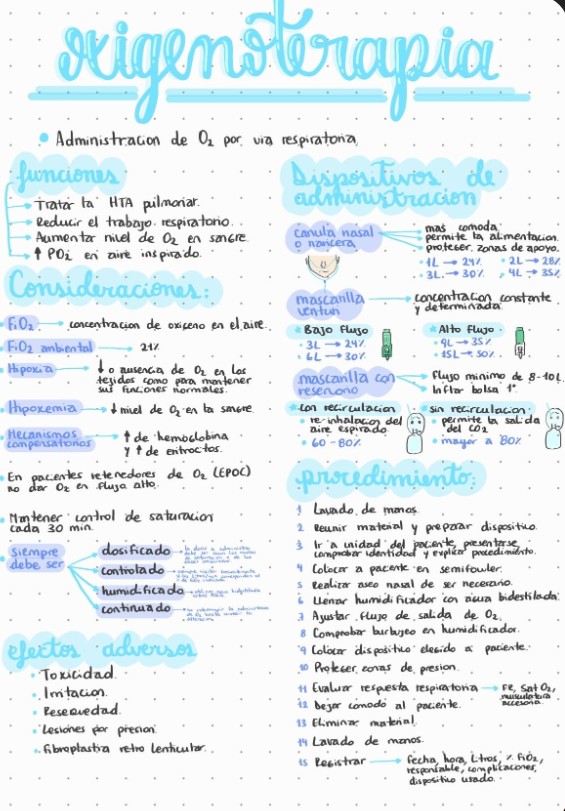 oxigenoterapia
Administracion de O₂ por via respiratoria
funciones
Tratar la HTA pulmonar.
Reducir el trabajo respiratorio.
Aumentar nivel de O₂ en sangre
↑ PO₂ en aire inspirado.
Consideraciones:
FiO₂ → concentracion de oxigeno en el aire.
FiO₂ ambiental → 21%
Hipoxia → ↓ o ausencia de O₂ en los
tejidos como para mantener
sus funciones normales.
Hipoxemia → ↓ nivel de O₂ en la sangre
Mecanismos
compensatorios
↑ de hemoglobina
y ↑ de eritrocitos.
En pacientes retenedores de O₂ (EPOC)
no dar O₂ en flujo alto.
Mantener control de saturacion
cada 30 min.
siempre
debe ser
dosificado
controlado
humidificado
continuado
efectos adversos
Toxicidad.
Irritacion.
Resequedad.
Lesiones por presion.
fibroplastia retro lenticular.
Dispositivos de
administracion
canula nasal
o naricera
mas comoda.
permite la alimentacion.
proteger zonas de apoyo.
1L → 24% 2L → 28%
3L → 30% 4L → 35%
mascarilla
venturi
concentracion constante
y determinada.
Bajo flujo
3L → 24%
6L → 30%
Alto flujo
9L → 35%
15L → 50%
mascarilla con
reservorio
flujo minimo de 8-10L
Inflar bolsa 1°
con recirculacion
re-inhalacion del
aire espirado
60-80%
sin recirculacion
permite la salida
del CO₂
mayor a 80%
procedimiento:
1 Lavado de manos
2 Reunir material y preparar dispositivo.
3 Ir a unidad del paciente, presentarse,
comprobar identidad y explicar procedimiento.
4 Colocar a paciente en semifowler.
5 Realizar aseo nasal de ser necesario.
6 Llenar humidificador con agua bidestilada.
7 Ajustar flujo de salida de O₂
8 Comprobar burbujeo en humidificador.
9 Colocar dispositivo elegido a paciente.
10 Proteger zonas de presion.
11 Evaluar respuesta respiratoria → FR, Sat O₂,
musculatura
accesoria.
12 Dejar comodo al paciente.
13 Eliminar material.
14 Lavado de manos.
15 Registrar → fecha, hora, Litros, % FiO₂,
responsable, complicaciones,
dispositivo usado.